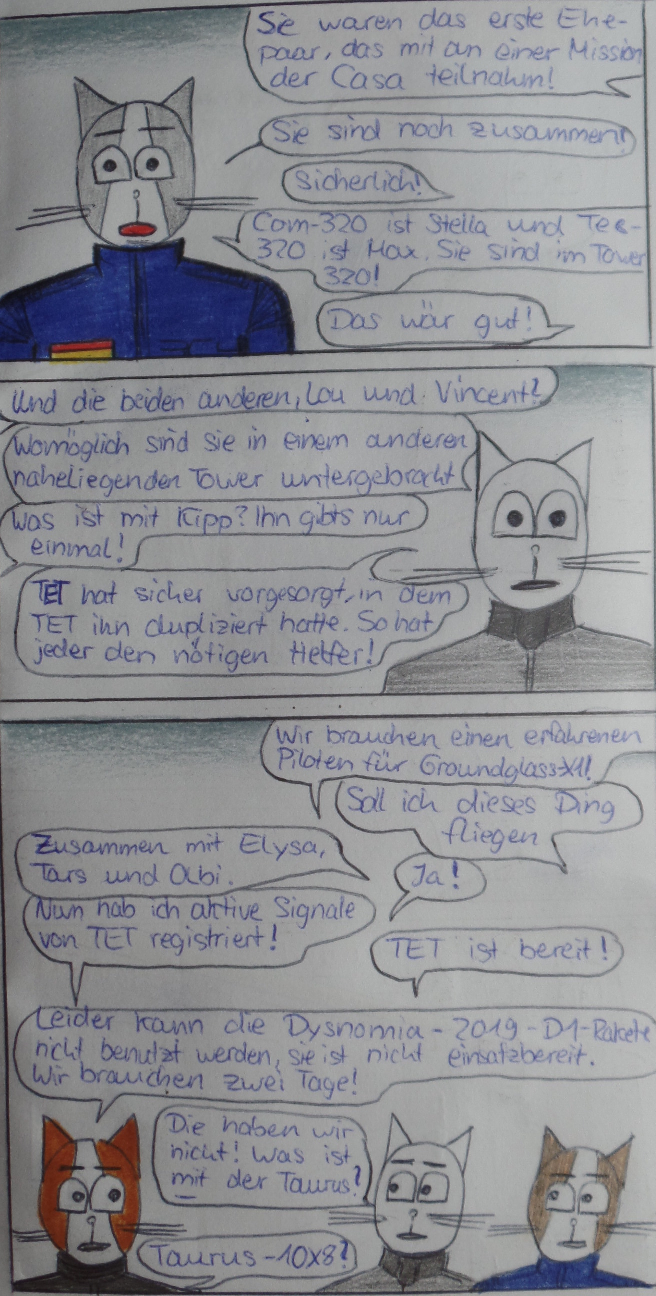 Sie waren das erste Ehe-
paar, das mit an einer Mission
der Casa teilnahm!
Sie sind noch zusammen!
Sicherlich!
Com-320 ist Stella und Tec-
320 ist Max. Sie sind im Tower
320!
Das wär gut!
Und die beiden anderen, Lou und Vincent?
Womöglich sind sie in einem anderen
naheliegenden Tower untergebracht
Was ist mit Kipp? Ihn gibts nur
einmal!
TET hat sicher vorgesorgt, in dem
TET ihn dupliziert hatte. So hat
jeder den nötigen Helfer!
Wir brauchen einen erfahrenen
Piloten für Groundglass-X1!
Soll ich dieses Ding
fliegen
Zusammen mit Elysa,
Tars und Abi.
Ja!
Nun hab ich aktive Signale
von TET registriert!
TET ist bereit!
Leider kann die Dysnomia-2019-D1-Rakete
nicht benutzt werden, sie ist nicht einsatzbereit.
Wir brauchen zwei Tage!
Die haben wir
nicht! Was ist
mit der Taurus?
Taurus-10x8?